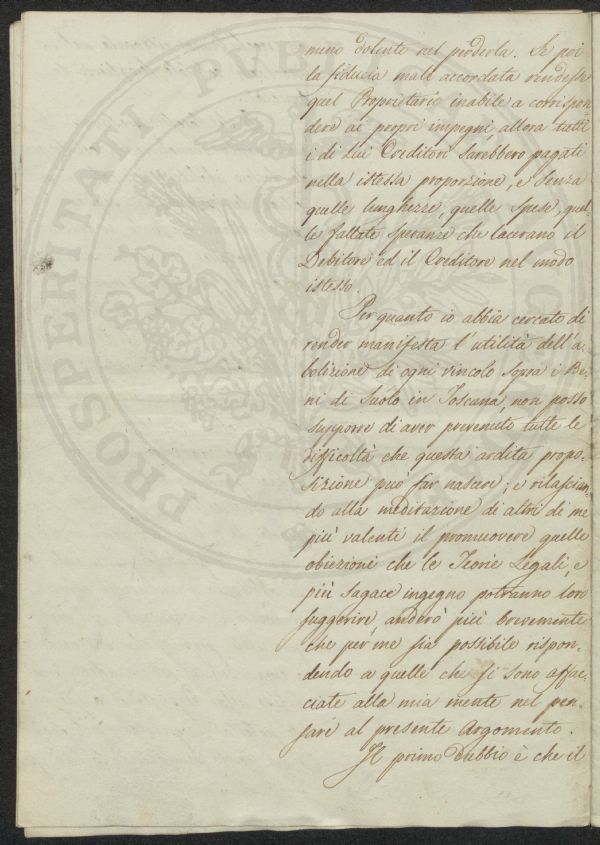 meno dolente nel perderla. Se poi
la fiducia male accordata rendesse
quel Proprietario inabile a corrispon-
dere ai propri impegni, allora tutti
i di Lui Creditori sarebbero pagati
nella istessa proporzione, e senza
quelle lunghezze, quelle spese, quel-
le fallate speranze che lacerano il
Debitore ed il Creditore nel modo
istesso.
Per quanto io abbia cercato di
render manifesta l'utilità dell'a-
bolizione di ogni vincolo sopra i Be-
ni di Suolo in Toscana, non posso
supporre di aver prevenuto tutte le
difficoltà che questa ardita propo-
sizione può far nascere; e rilascian-
do alla meditazione di altri di me
più valenti il promuovere quelle
obiezioni che le Teorie Legali, e
più sagace ingegno potranno loro
suggerire, anderò più brevemente
che per me sia possibile rispon-
dendo a quelle che si sono affac-
ciate alla mia mente nel pen-
sare al presente Argomento.
Il primo dubbio è che il
PROSPERITATI PUBLICAE